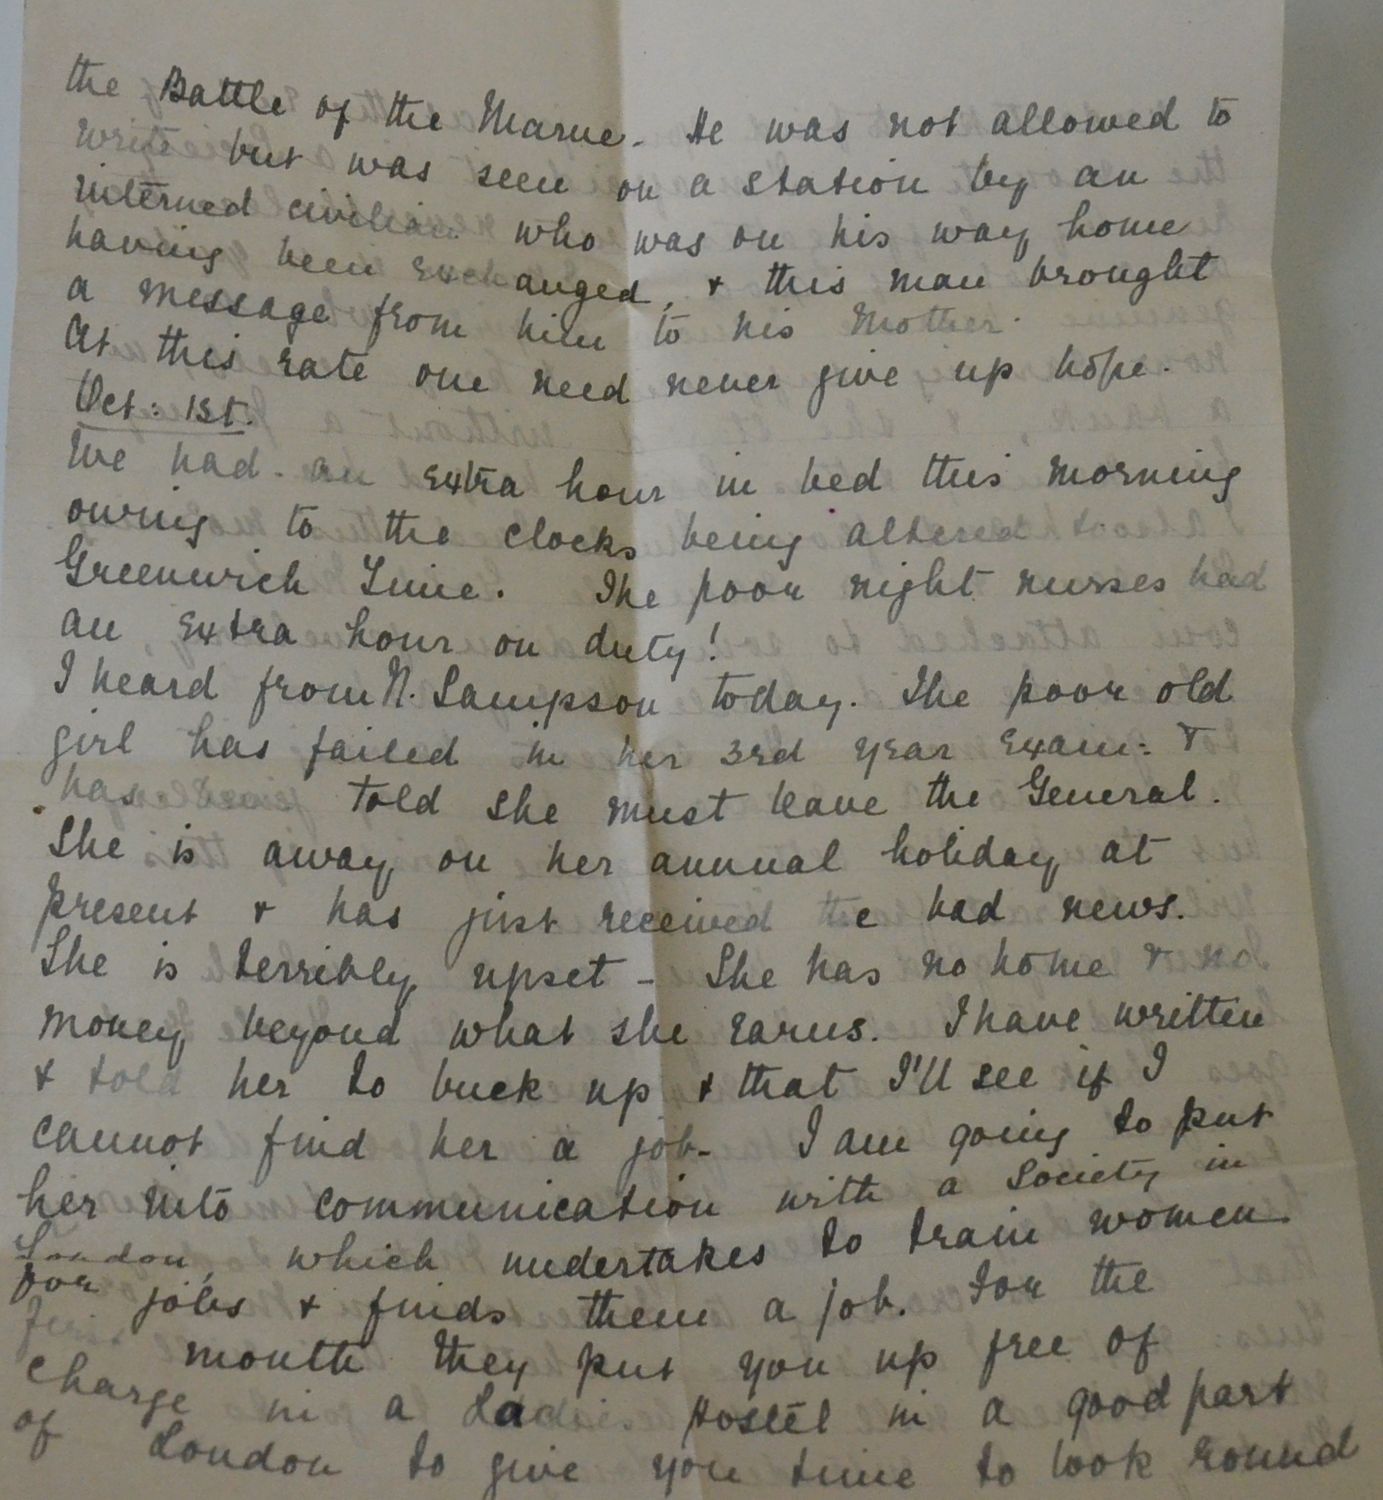 the Battle of the Marne. He was not allowed to
write but was seen on a station by an
interned civilian who was on his way home
having been exchanged, & this man brought
a message from him to his Mother.
At this rate one need never give up hope.
Oct: 1st.
We had an extra hour in bed this morning
owing to the clocks being altered to
Greenwich Time. The poor night nurses had
an extra hour on duty!
I heard from N. Sampson today. The poor old
girl has failed in her 3rd year exam: &
has been told she must leave the General.
She is away on her annual holiday at
present & has just received the bad news.
She is terribly upset - She has no home & no
money beyond what she earns. I have written
& told her to buck up & that I'll see if I
cannot find her a job - I am going to put
her into communication with a Society in
London, which undertakes to train women
for jobs & finds them a job. For the
first month they put you up free of
charge in a Ladies Hostel in a good part
of London to give you time to look round